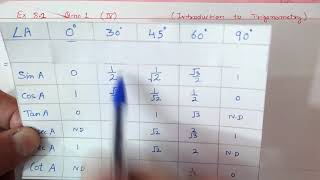 Ex 8.2 Q.no 1 (iv) (Introduction to Trigonometry)
∠A 0° 30° 45° 60° 90°
Sin A 0 1/2 1/√2 √3/2 1
Cos A 1 1/√2 1/2 0
Tan A 0 1 √3 N.D
A N.D √2 2/√3 1
A 1 √2 2 N.D
Cot A 0